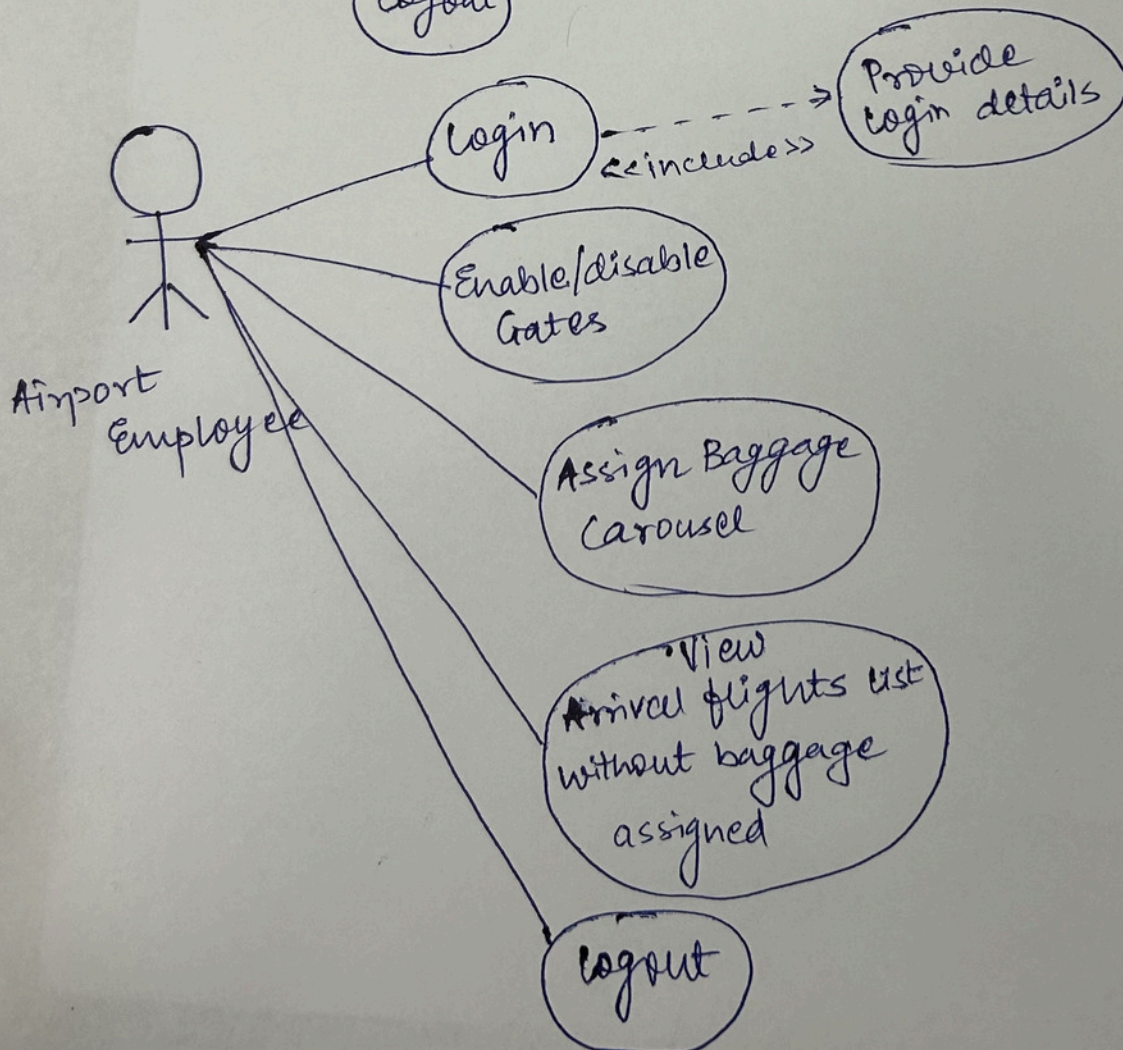 Logout
Login
Provide
Login details
<<include>>
Enable/disable
Gates
Airport
Employee
Assign Baggage
Carousel
View
Arrival flights list
without baggage
assigned
Logout